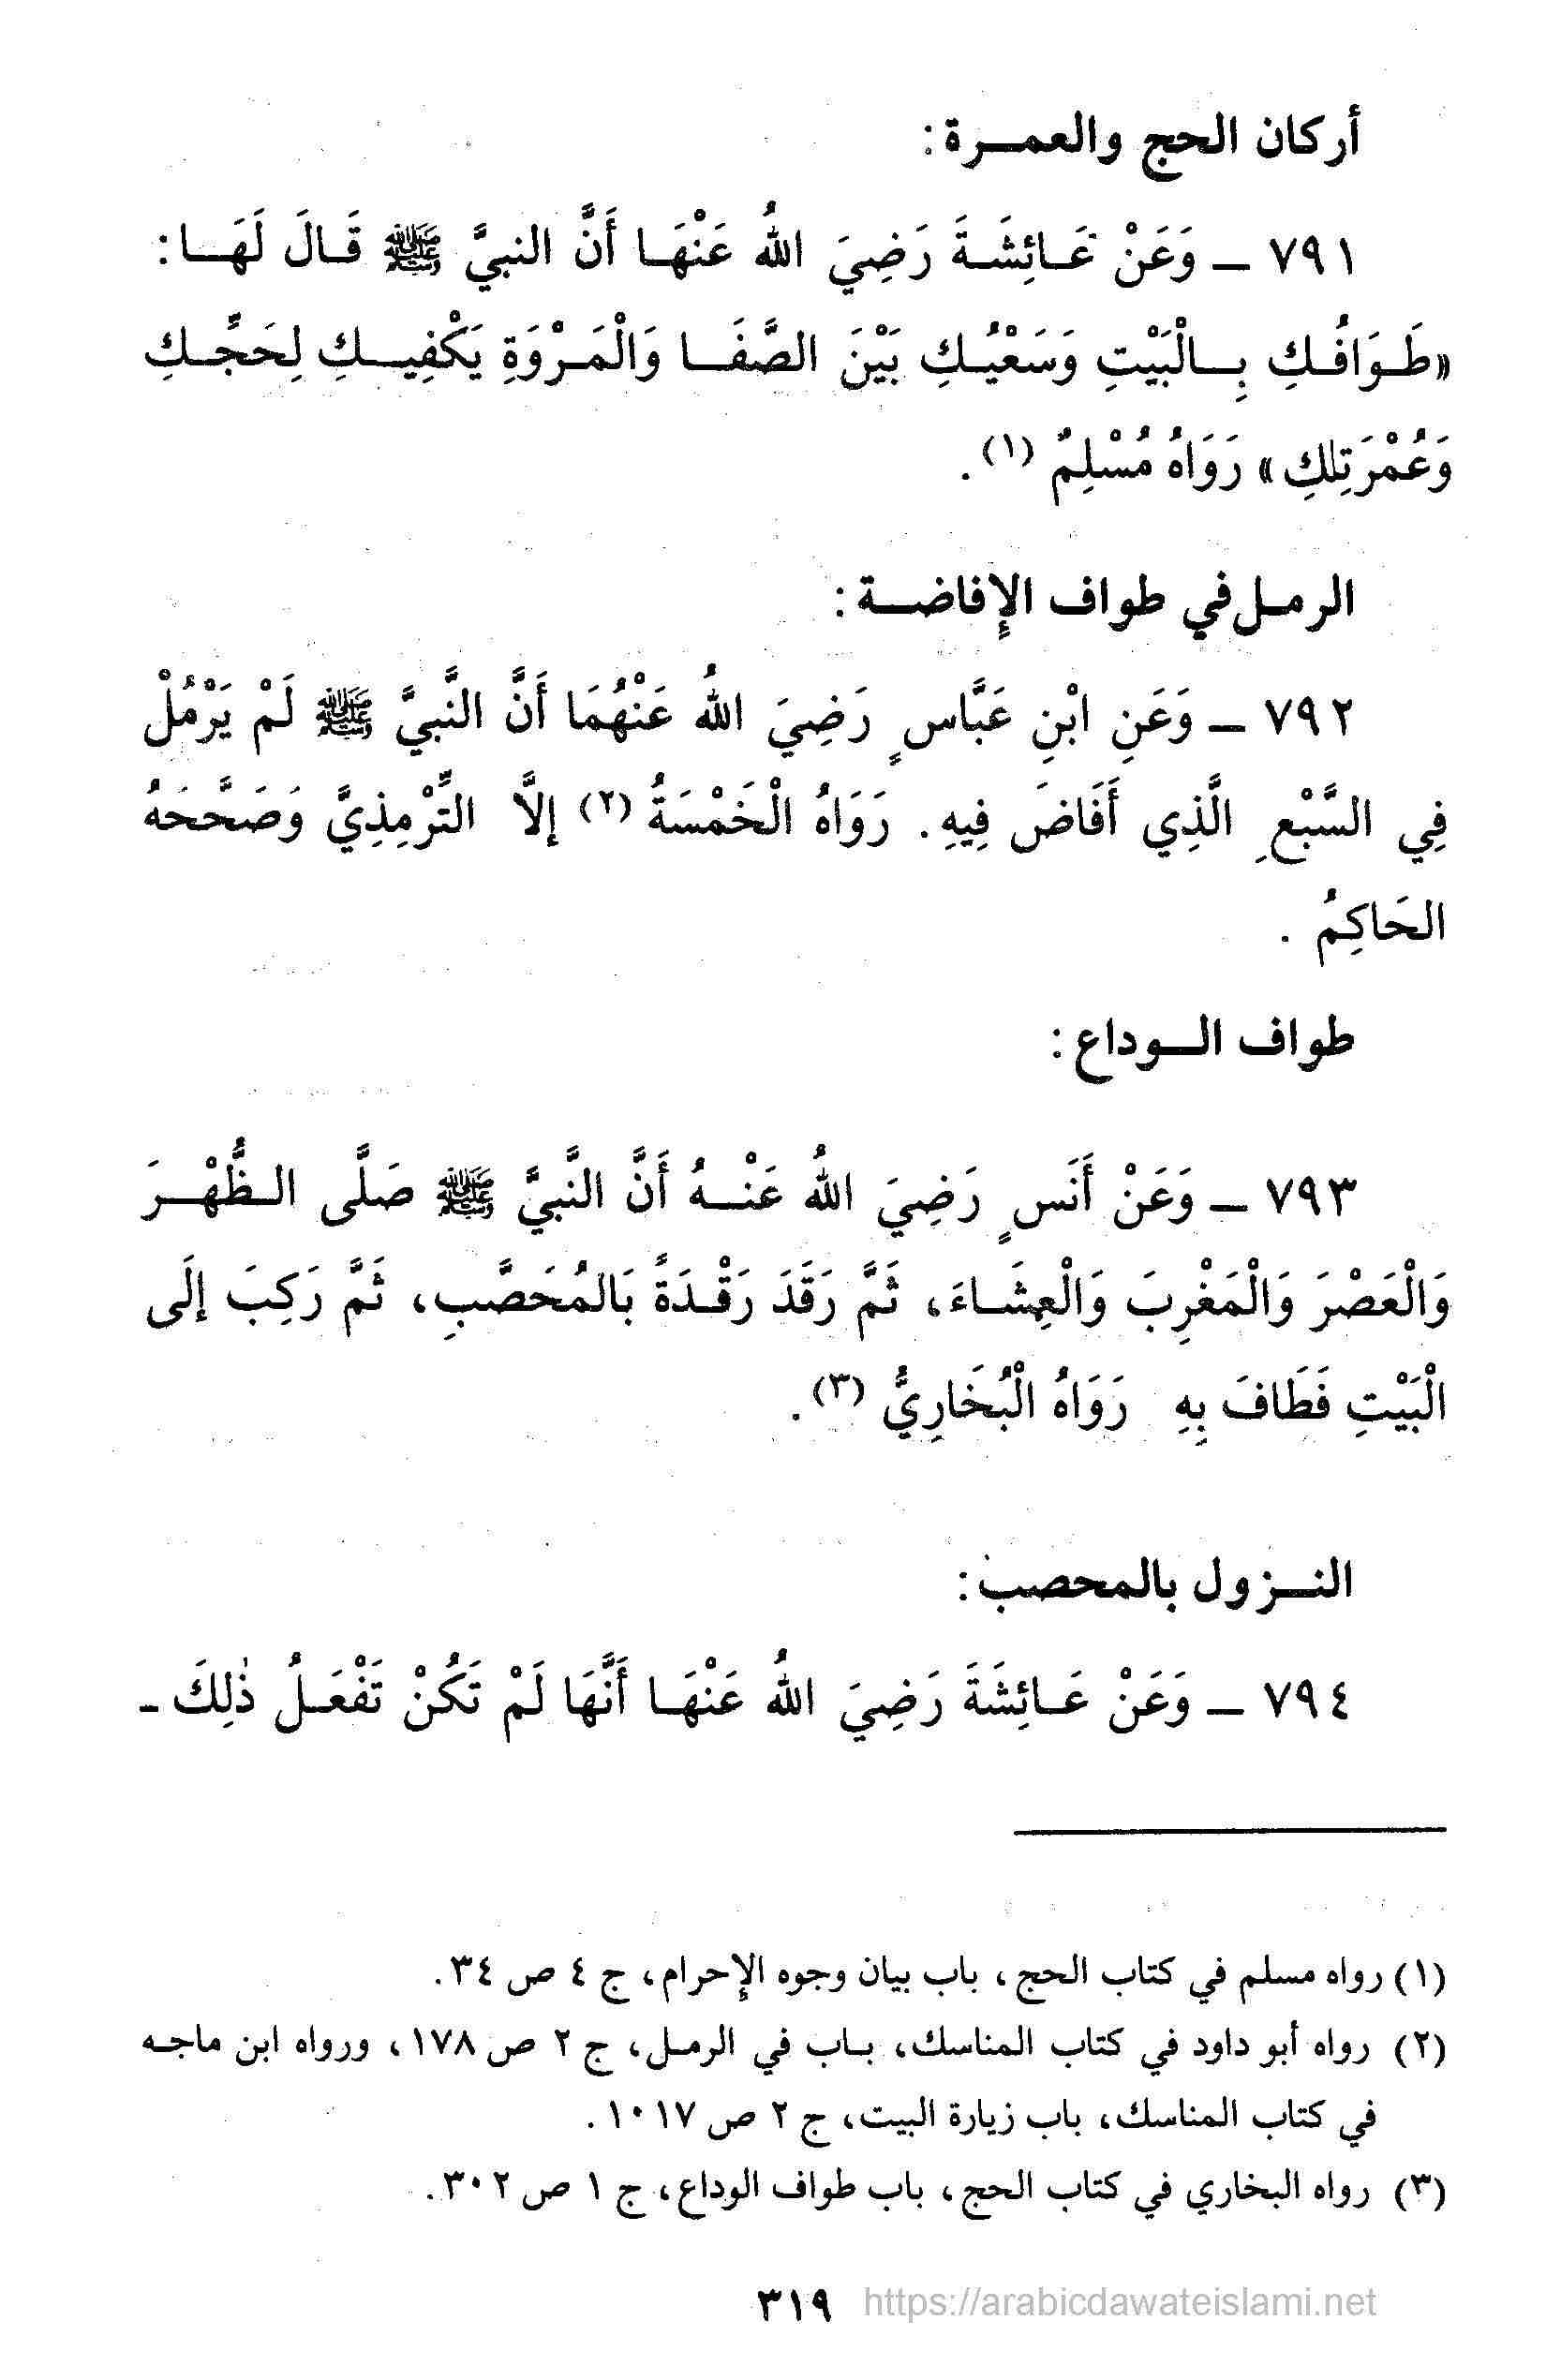 أركان الحج والعمـرة:
٧٩١ ــ وَعَنْ عَـائِشَـةَ رَضِيَ اللهُ عَنْهَـا أَنَّ النبيَّ ﷺ قَـالَ لَهَـا:
«طَـوَافُـكِ بِـالْبَيْتِ وَسَعْيُـكِ بَيْنَ الصَّفَـا وَالْمَـرْوَةِ يَكْفِيـكِ لِحَجِّـكِ
وَعُمْرَتِكِ» رَوَاهُ مُسْلِمٌ (١).
الرمـل في طواف الإِفاضـة:
٧٩٢ ــ وَعَنِ ابْنِ عَبَّاسٍ رَضِيَ اللهُ عَنْهُمَا أَنَّ النَّبيَّ ﷺ لَمْ يَرْمُلْ
فِي السَّبْعِ الَّذِي أَفَاضَ فِيهِ. رَوَاهُ الْخَمْسَةُ (٢) إلاَّ التِّرْمِذِيَّ وَصَحَّحَهُ
الحَاكِمُ .
طواف الـوداع:
٧٩٣ ــ وَعَنْ أَنَسٍ رَضِيَ اللهُ عَنْـهُ أَنَّ النَّبيَّ ﷺ صَلَّى الـظُّهْـرَ
وَالْعَصْرَ وَالْمَغْرِبَ وَالْعِشَـاءَ، ثَمَّ رَقَدَ رَقْـدَةً بَالمُحَصَّبِ، ثَمَّ رَكِبَ إلَى
الْبَيْتِ فَطَافَ بِهِ رَوَاهُ الْبُخَارِيُّ (٣).
النـزول بالمحصب:
٧٩٤ ــ وَعَنْ عَـائِشَةَ رَضِيَ اللهُ عَنْهَـا أَنَّهَا لَمْ تَكُنْ تَفْعَـلُ ذٰلِكَ ـ
(١) رواه مسلم في كتاب الحج، باب بيان وجوه الإِحرام، ج ٤ ص ٣٤.
(٢) رواه أبو داود في كتاب المناسك، بـاب في الرمـل، ج ٢ ص ١٧٨، ورواه ابن ماجـه
في كتاب المناسك، باب زيارة البيت، ج ٢ ص ١٠١٧.
(٣) رواه البخاري في كتاب الحج، باب طواف الوداع، ج ١ ص ٣٠٢.
٣١٩ https://arabicdawateislami.net